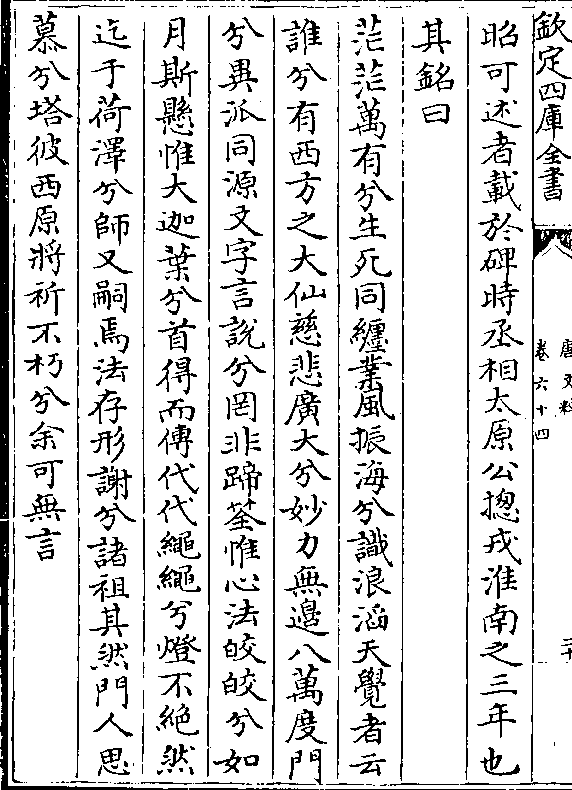 欽定四庫全書
唐文粹
卷六十四
二十
昭可述者載於碑時丞相太原公揔戎淮南之三年也
其銘曰
茫茫萬有兮生死同纏業風振海兮識浪滔天覺者云
誰兮有西方之大仙慈悲廣大兮妙力無邊八萬度門
兮異派同源文字言說兮罔非蹄筌惟心法皎皎兮如
月斯懸惟大迦葉兮首得而傳代代繩繩兮燈不絶然
迄于荷澤兮師又嗣焉法存形謝兮諸祖其然門人思
慕兮塔彼西原將祈不朽兮余可無言